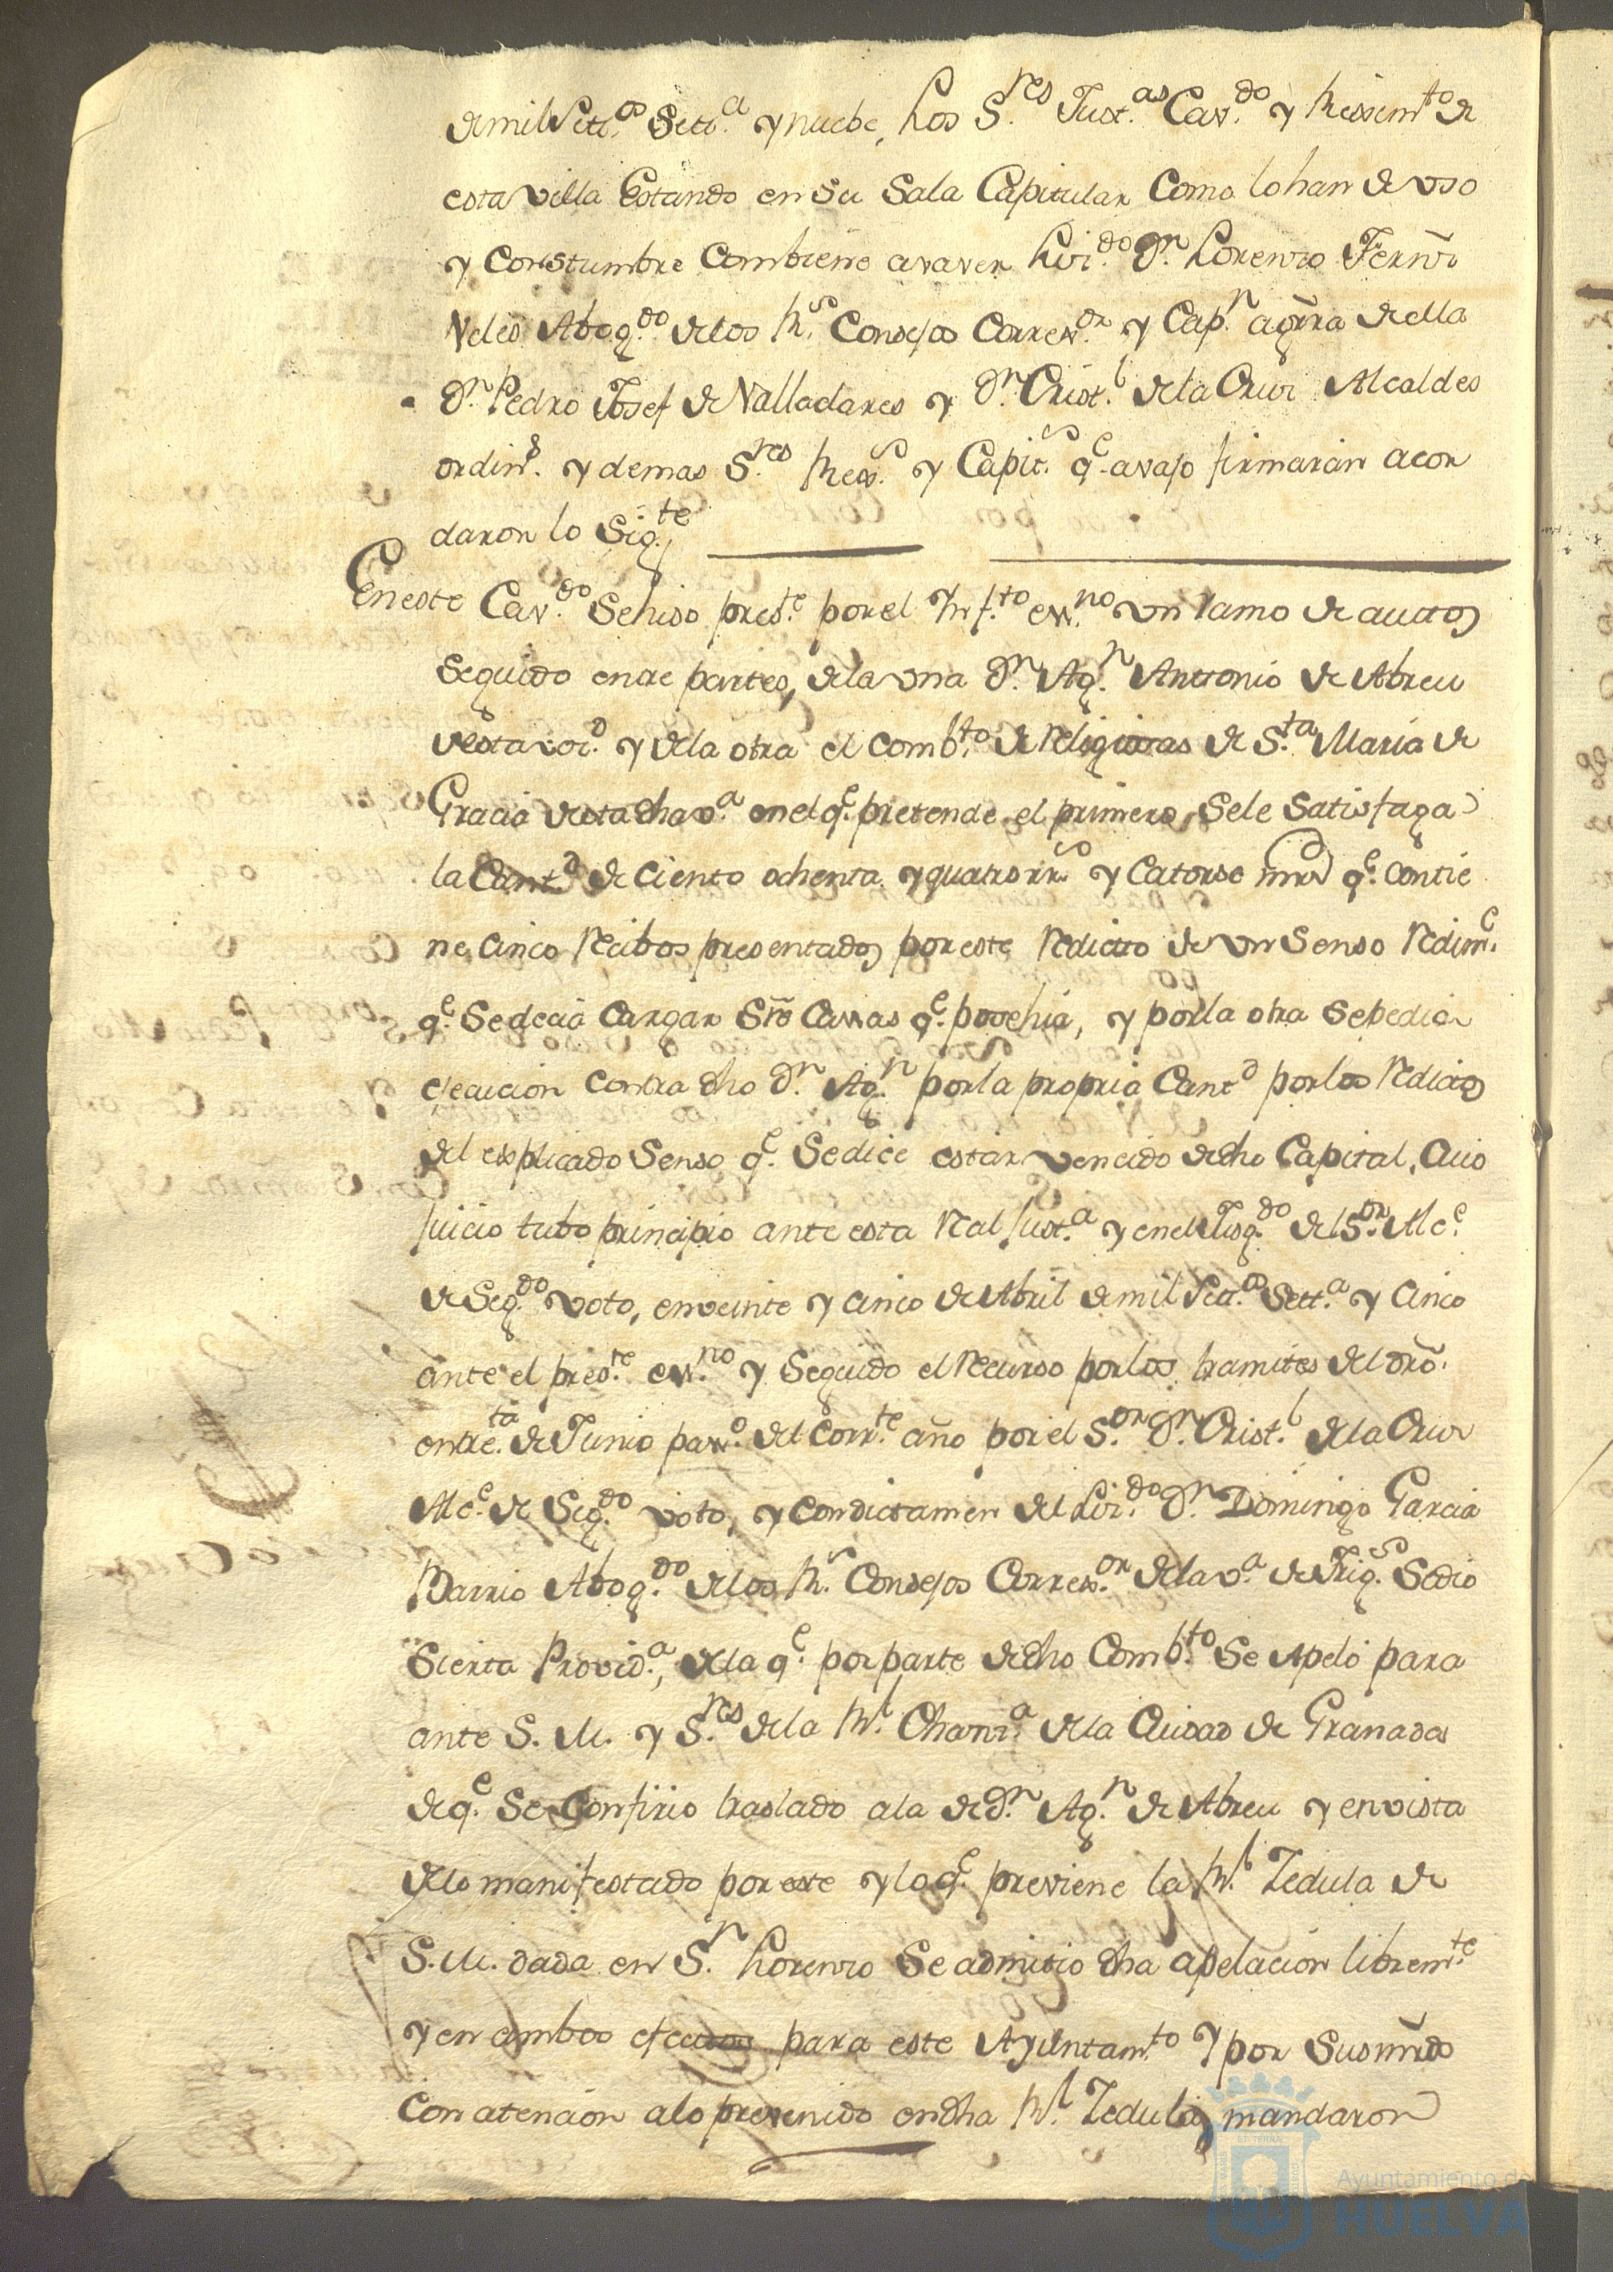 de mil Sett.os Sett.a y nuebe, Los S.res Just.as Cav.do y Rexim.to de
esta villa Estando en su Sala Capitular Como lo han de vso
y Constumbre Combiene a saver Liz.do D.n Lorenzo Fernz
Veles Abog.do de los R.s Consejos Correx.or y Cap.n a grra de ella
D.n Pedro Josef de Valladares y D.n Crist.l de la Cruz Alcaldes
ordin.s y demas S.res Rex.s y Capit.s q.e avajo firmarán acor
daron lo Sig.te
En este Cav.do Se hiso pres.te por el Ynf.to ess.no vn ramo de auttos
Seguido entre partes, de la vna D.n Ag.n Antonio de Abreu
de esta vez.d y de la otra el comb.to de Religiosas de S.ta Maria de
Gracia de esta dha v.a en el q.e pretende el primero Se le Satisfaga
la Cant.d de Ciento ochenta y quatro rr.s y Catorse mrs q.e contie
ne, Cinco Recibos presentados por este Redicto de vn Senso Redim.e
q.e Se decia Cargar Sre Casas q.e posehia, y por la otra Se pedia
ejecucion contra dho D.n Ag.n por la propria Cant.d por los Redictos
del explicado Senso q.e Se dice estar vencido de dho Capital, Cuio
Juicio tubo principio ante esta Real Just.a y en el Jusg.do del S.or Alc.e
de Seg.do voto, en veinte y cinco de Abril de mil Sett.os Sett.a y Cinco
ante el pres.te ess.no y Seguido el Recurso por los tramites del dro.
en tre.ta de Junio pas.o del Corr.te año por el S.or D.n Crist.l de la Cruz
Alc.e de Seg.do voto, y Con dictamen del Liz.do D.n Domingo Garcia
Barrio Abog.do de los R.s Consejos Correx.or de la v.a de Trig.s Se dio
Sierta Provid.a, de la q.e por parte de dho Comb.to Se Apeló para
ante S. M. y S.res de la R.l Chanz.a de la Ciudad de Granada
de q.e Se Confirio traslado a la de D.n Ag.n de Abreu y en vista
de lo manifestado por este y lo q.e previene la R.l Zedula de
S. M. dada en S.n Lorenzo Se admitio dha apelacion librem.te
y en ambos efectos para este Ayuntam.to y por Sus mrds
Con atencion a lo prevenido en dha R.l Zedula, mandaron
Ayuntamiento de
HUELVA